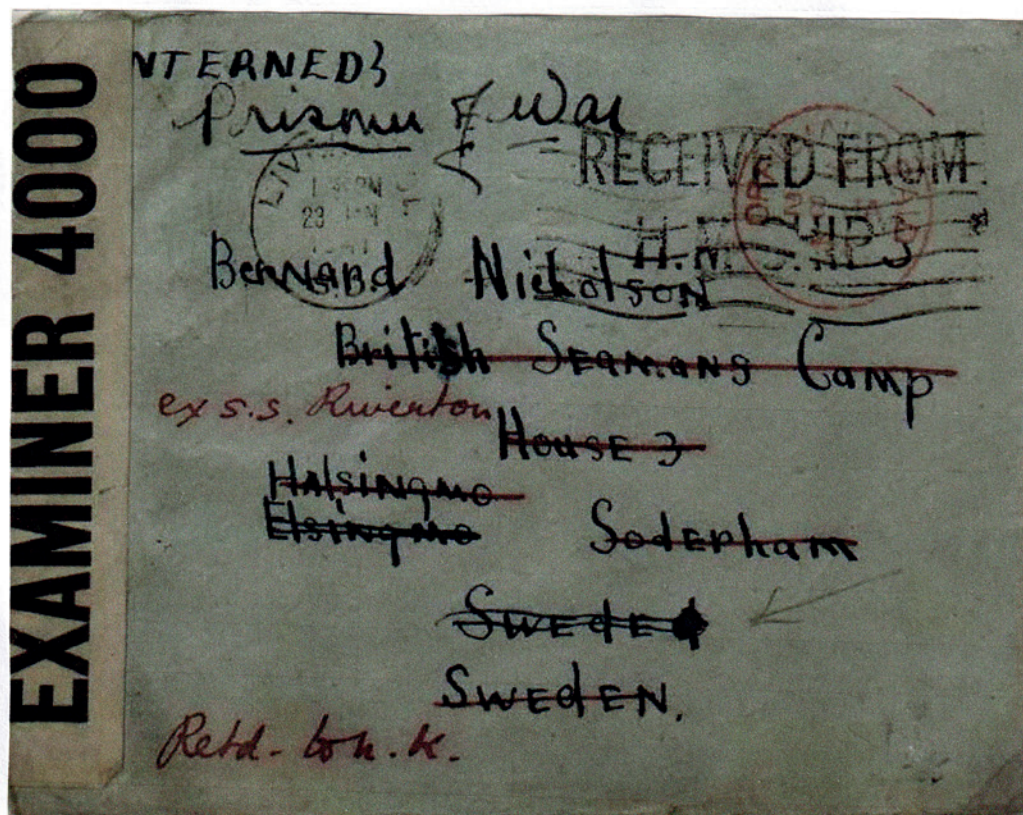 EXAMINER 4000
NTERNED}
Prisoner of War
RECEIVED FROM
H.M. SHIPS
Bernard Nicholson
British Seamans Camp
ex s.s. Riverton
House 3
Halsingmo
Elsingmo Soderham
Swede
Sweden.
Retd -